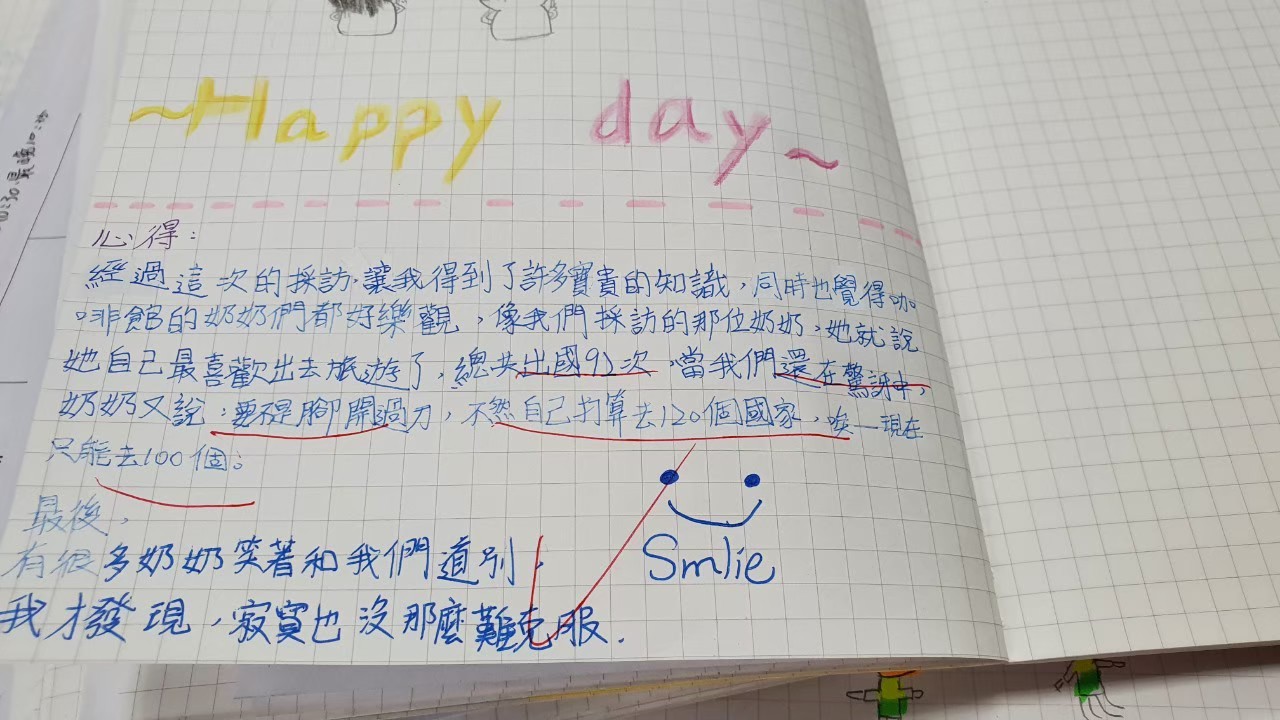 ~Happy day~
心得：
經過這次的採訪，讓我得到了許多寶貴的知識，同時也覺得咖
啡館的奶奶們都好樂觀，像我們採訪的那位奶奶，她就說
她自己最喜歡出去旅遊了，總共出國91次，當我們還在驚訝中，
奶奶又說，要不是腳開過刀，不然自己打算去120個國家，唉—現在
只能去100個。
最後，
有很多奶奶笑著和我們道別，
我才發現，寂寞也沒那麼難克服．
Smlie